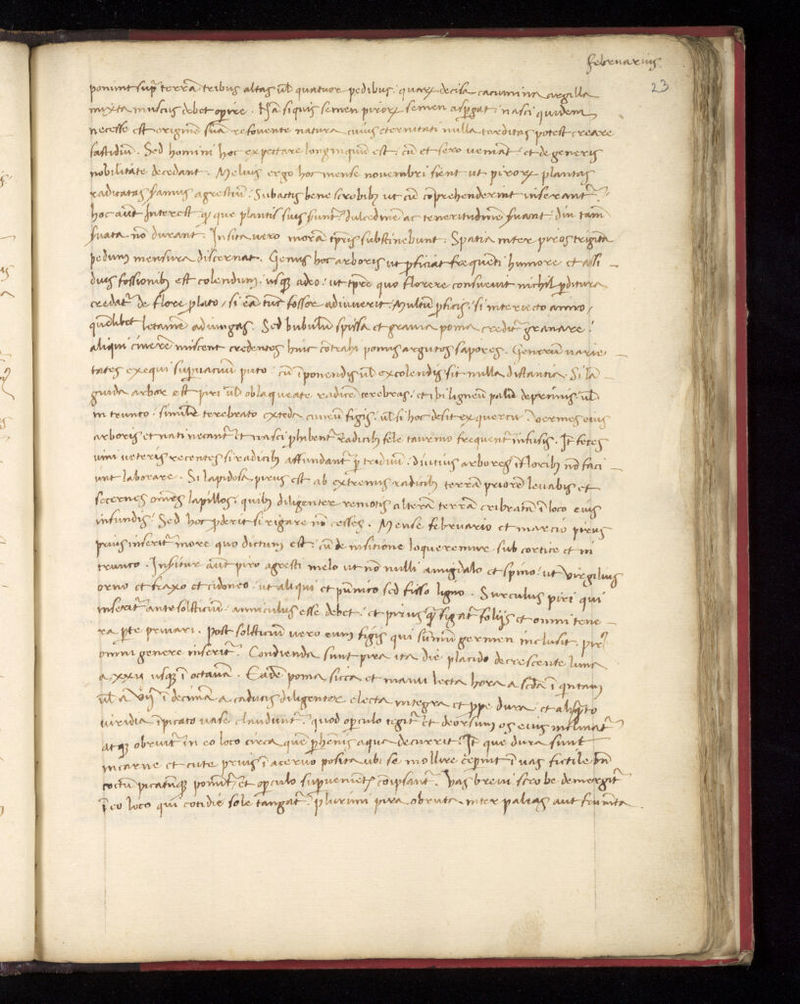 februarius.
23
ponunt sup̄ terrā tribus altas ul̄ quatuor pedibus. quaꝝ decisa cacumina argilla
mixta muscus debet oꝑire. Nā si quis semen piroꝝ semen aspgat. nasci quidem
necesse est originē suā refovente natura cuius eternitati nulla tarditas potest creare
fastidiū. Sed homini hoc expectare longinquū est. cū et sero veniāt et de generis
nobilitate decedant. Melius ergo hoc mense novembri sient ut piroꝝ plantas
radicatas agrestiū. Subactis bene scrobibꝫ ut cū cōprehenderint inserant᷑
hoc aūt interest. ꝙ que plantis suis sunt. dulcedinē ac teneritudinē suant. diu tam̄
suata nō durant. Insita vero morā tꝑis substinebunt. Spatia inter piros triginta
pedum mensura discernat. Genus hoc arboris ut ꝓficiat frequēti humore et assi
duis fossionibꝫ est colendum. usqꝫ adeo. ut tꝑe quo florere consuevit nichil ꝑditura
credat᷑ de flore plato, si eā tūc fossor adiuverit. Multū ꝓficis. si interiecto anno,
quēlibet letamē adiungas. Sed bubulū spissa et gravia poma credit᷑ generare.
aliqui cinerē miscent credentes huic cōtrahi pomis argutos sapores. Generū varie
tates exequi supvacuū puto. cū ī ponendis ul̄ excolendis sit nulla distantia. Si lā
guida arbor est piri ul̄ oblaqueate radicē terebras. et ibi ligneū palū deprimis ul̄
in trunco. simil̄r terebrato ex teda cuneū figis. ul̄ si hoc desit ex quercu. Vermes eius
arboris et nati necant᷑ et nasci ꝓhibent᷑ radicibꝫ fele taurino frequent᷑ infusis. Itē feces
vini veteris recentes si radicibꝫ affundant᷑ ꝑ triduū. diutius arbores ī floribꝫ nō faci
unt laborare. Si lapidosa pirus est ab extremis radicibꝫ terrā priorē levabis et
secernes omēs lapillos. quibꝫ diligenter remotis alterā terrā cribratā ī loco eius
infundis. Sed hoc ꝓderit si rigare nō cesses. Mense februario et marcio pirus
prius inserit᷑ more quo dictum est. cū de insitione loqueremur. sub cortice et in
trunco. Insitur aūt piro agresti melo ut nō nulli amigdalo et spino. ut Virgilius
orno et fraxo et cidoneo. ut aliqui et pūnico sed fisso ligno. Surculus piri qui
inserit᷑ ante solsticiū. anniculus esse debet. et prius ꝙ̄ figat᷑ folijs et omni tene
ra ꝑte privari. post solsticiū vero eum figis qui sūmū germen inclusit. pir᷑
omni genere inserit᷑. Condienda sunt pira ita. die placido decrescente luna
a xxij usqꝫ ī octavā. Eadē poma sicca et manu lecta hora a scd̄a ī quintam
ul̄ a vij ī decimā a caducis diligenter electa integra et ꝓpe dura et aliqto
viridia ī picato vase clauduntur. quod oꝑculo tegit᷑ et deorsum os eius inclinat᷑
atqꝫ obruit᷑ in eo loco circa quē ꝑhennis aqua decurrit. Itē que dura sunt
in carne et cute prius ī acervo posita ubi se mollire ceperint ī vas fictile bn̄
coctū picatūqꝫ ponunt᷑ et oꝑculo supveniente gipsant᷑. Vas brevi scrobe demergit᷑
ī eo loco qui cotidie sole tangat᷑. plurimi pira obruta inter paleas aut frum̄ta.